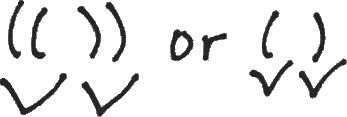 (( )) or ( )
✓ ✓ ✓ ✓